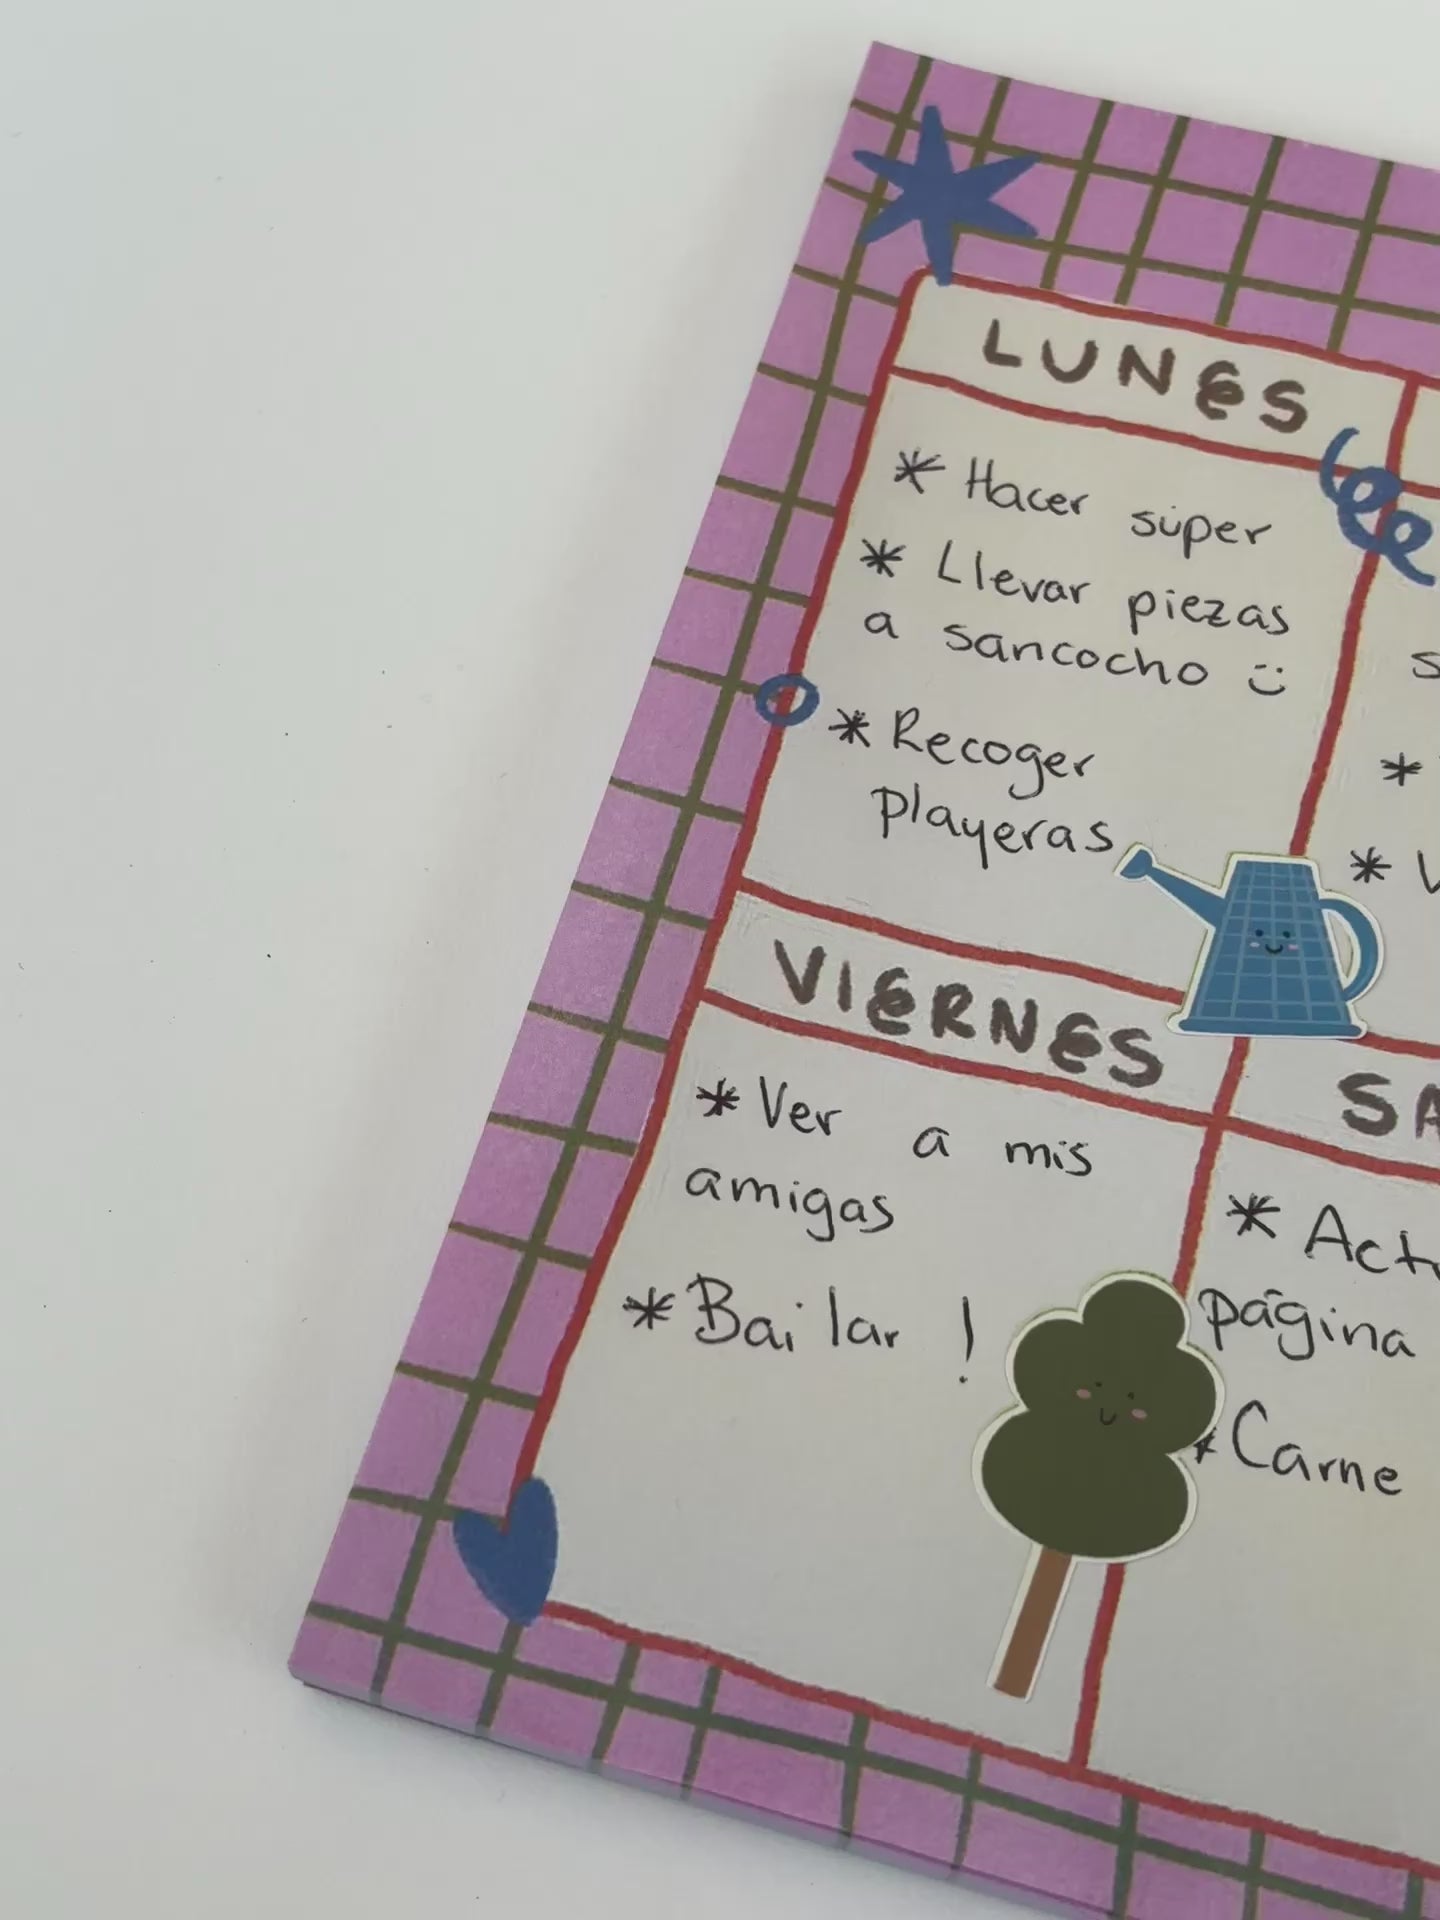 LUNES
* Hacer súper
* Llevar piezas
a sancocho :)
* Recoger
playeras
*
*
VIERNES
* Ver a mis
amigas
* Bailar !
*
página
* Carne